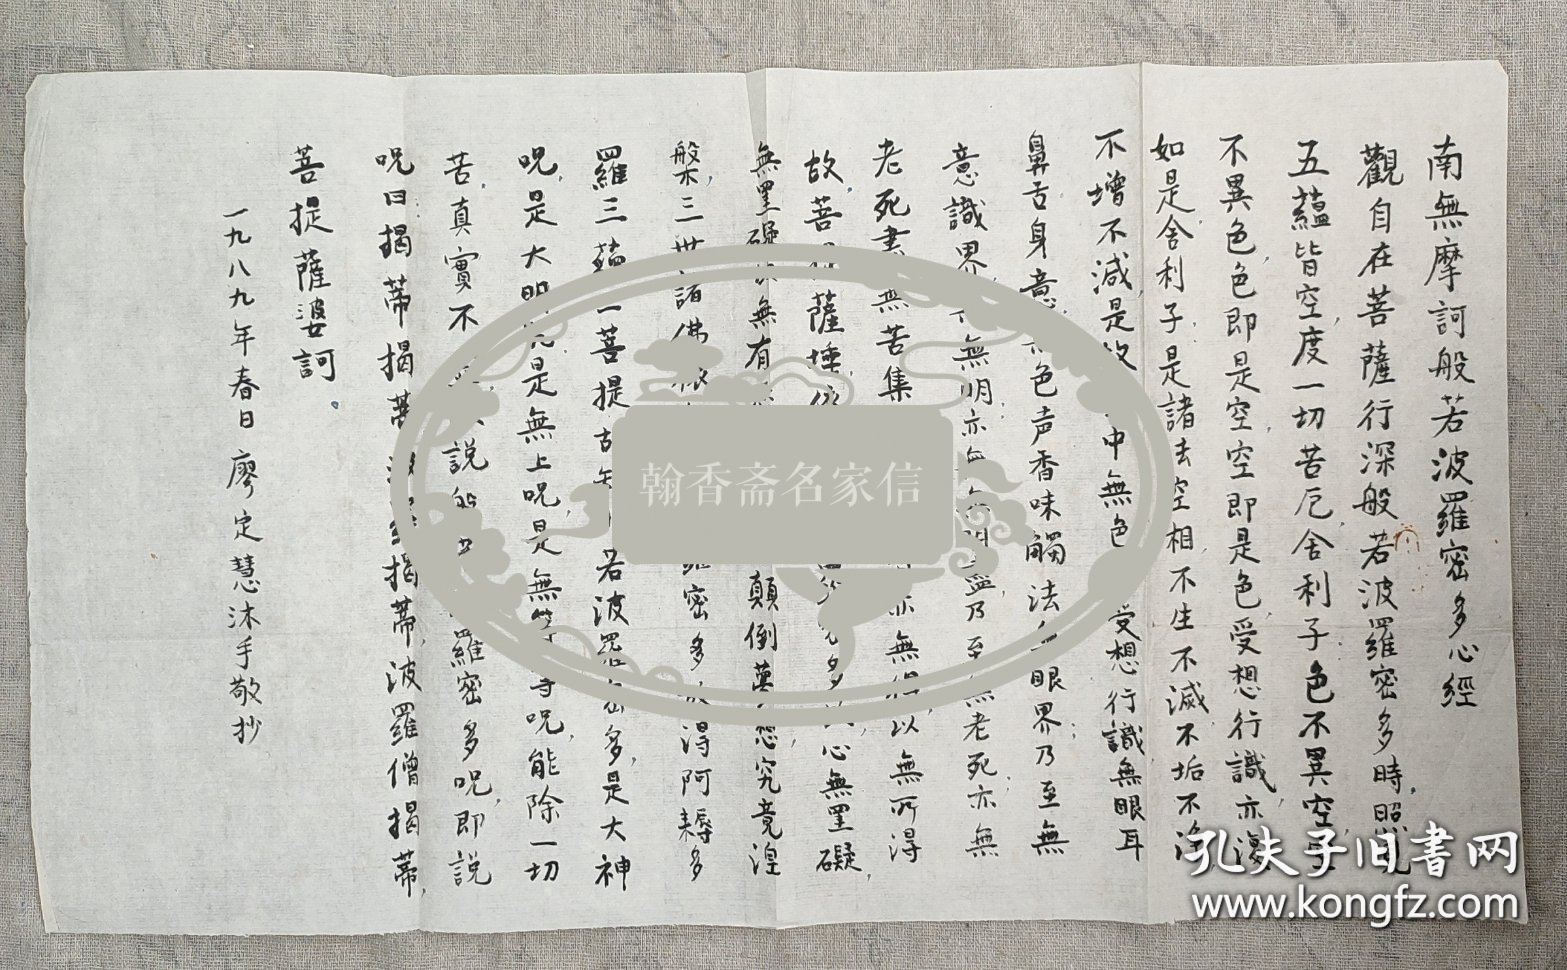 南無摩訶般若波羅密多心經
觀自在菩薩行深般若波羅密多時照見
五蘊皆空度一切苦厄舍利子色不異空空
不異色色即是空空即是色受想行識亦復
如是舍利子是諸法空相不生不滅不垢不淨
不增不減是故中無色受想行識無眼耳
鼻舌身意色声香味觸法無眼界乃至無
意識界無明亦無無明盡乃至無老死亦無
老死盡無苦集亦無得以無所得
故菩提薩埵依多故心無罣礙
無罣礙故無有顛倒夢想究竟湼
槃三世諸佛羅密多故得阿耨多
羅三藐三菩提故知若波羅密多是大神
呪是大明呪是無上呪是無等等呪能除一切
苦真實不説般羅密多呪即説
呪曰揭蒂揭蒂波羅揭蒂波羅僧揭蒂
菩提薩婆訶
一九八九年春日廖定慧沐手敬抄
翰香斋名家信
孔夫子旧書网
www.kongfz.com